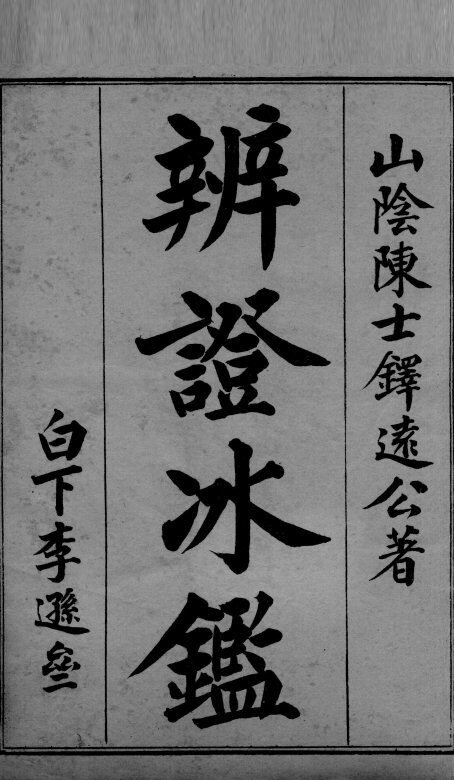 山陰陳士鐸遠公著
辨證冰鑑
白下李遜叅